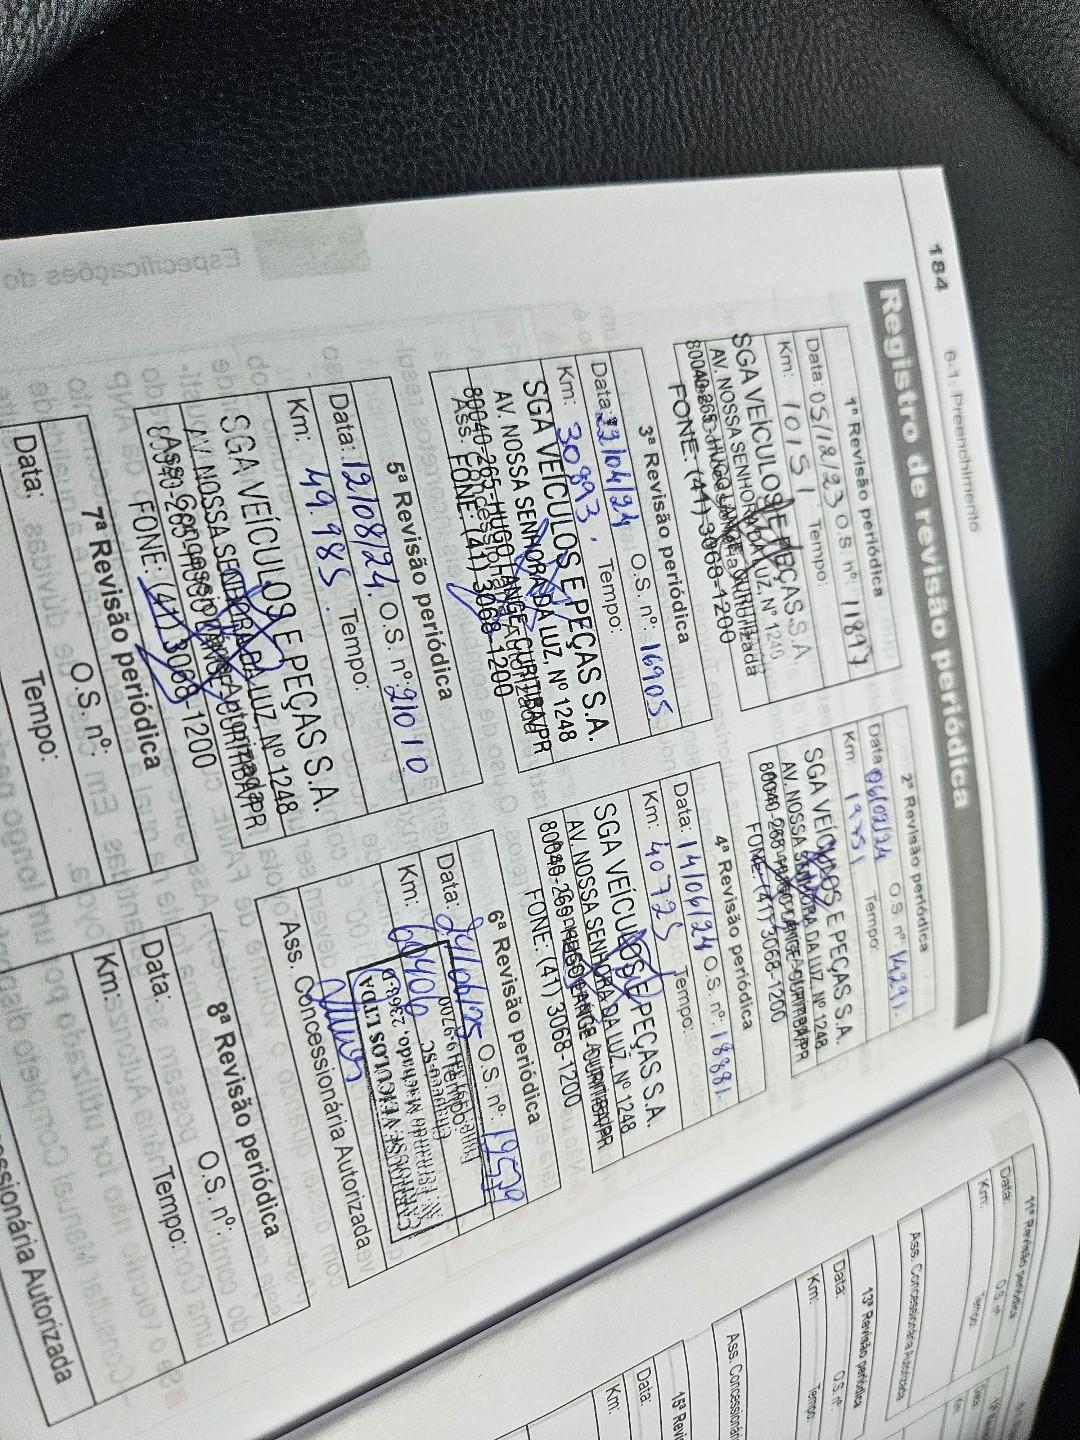 184
6-1. Preenchimento
Registro de revisão periódica
1ª Revisão periódica
Data: 05/12/23 O.S. nº: 11897
Km: 10151 Tempo:
SGA VEÍCULOS E PEÇAS S.A.
AV. NOSSA SENHORA DA LUZ, Nº 1248
FONE: (41) 3068-1200
2ª Revisão periódica
Data: 06/02/24 O.S. nº: 14291.
Km: 19751 Tempo:
SGA VEÍCULOS E PEÇAS S.A.
AV. NOSSA SENHORA DA LUZ, Nº 1248
80040-265-HUGO LANGE-CURITIBA/PR
FONE: (41) 3068-1200
3ª Revisão periódica
Data: 22/04/24 O.S. nº: 16905
Km: 30893. Tempo:
SGA VEÍCULOS E PEÇAS S.A.
AV. NOSSA SENHORA DA LUZ, Nº 1248
80040-265-HUGO LANGE-CURITIBA/PR
FONE: (41) 3068-1200
4ª Revisão periódica
Data: 14/06/24 O.S. nº: 18881.
Km: 40725 Tempo:
SGA VEÍCULOS E PEÇAS S.A.
AV. NOSSA SENHORA DA LUZ, Nº 1248
80040-265-HUGO LANGE-CURITIBA/PR
FONE: (41) 3068-1200
5ª Revisão periódica
Data: 12/08/24. O.S. nº: 21010
Km: 49.985. Tempo:
SGA VEÍCULOS E PEÇAS S.A.
AV. NOSSA SENHORA DA LUZ, Nº 1248
FONE: (41) 3068-1200
6ª Revisão periódica
Data: O.S. nº:
Km: 60406 Tempo:
Ass. Concessionária Autorizada
7ª Revisão periódica
Data: O.S. nº:
Tempo:
8ª Revisão periódica
Data: O.S. nº:
Km: Tempo:
Autorizada
11ª Revisão periódica
Data: O.S. nº:
Km: Tempo:
Ass. Concessionária Autorizada
13ª Revisão periódica
Data: O.S. nº:
Km: Tempo:
Ass. Concessionária
15ª
Data:
Km: